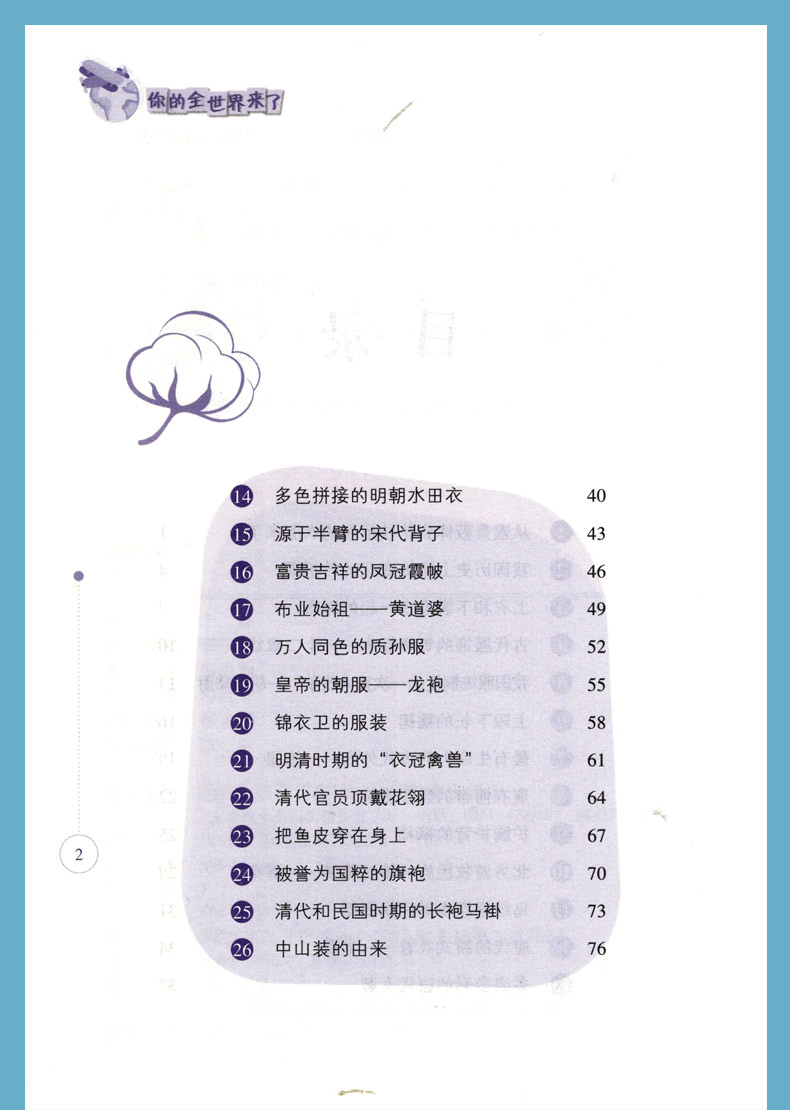 你的全世界来了
14 多色拼接的明朝水田衣 40
15 源于半臂的宋代背子 43
16 富贵吉祥的凤冠霞帔 46
17 布业始祖——黄道婆 49
18 万人同色的质孙服 52
19 皇帝的朝服——龙袍 55
20 锦衣卫的服装 58
21 明清时期的“衣冠禽兽” 61
22 清代官员顶戴花翎 64
23 把鱼皮穿在身上 67
24 被誉为国粹的旗袍 70
25 清代和民国时期的长袍马褂 73
26 中山装的由来 76
2